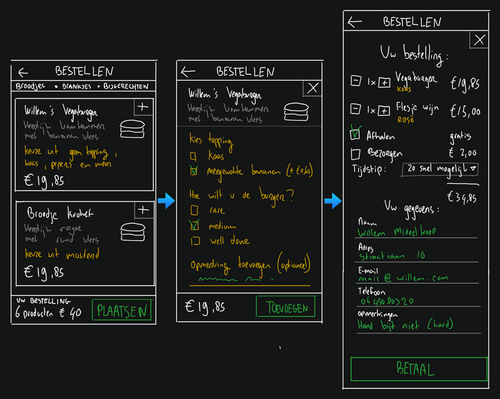 BESTELLEN
Broodjes • DRANKJES • BIJGERECHTEN
Willem's Vegaburger
Heerlijk
met bananen vlees
keuze uit geen topping,
kaas,
€ 19,85
Broodje kroket
Heerlijk ragoe
met rund vlees
keuze uit mosterd
€ 19,85
UW BESTELLING
6 producten € 40
PLAATSEN
BESTELLEN
Willem's Vegaburger
Heerlijk
met bananen vlees
Kies topping
kaas
meegewokte bananen (+ €0,10)
Hoe wilt u de burger?
rare
medium
well done
Opmerking toevoegen (optioneel)
€ 19,85
TOEVOEGEN
BESTELLEN
Uw bestelling:
1x Vegaburger €19,85
KAAS
1x Flesje wijn €15,00
ROSÉ
Afhalen gratis
Bezorgen € 2,00
Tijdstip: zo snel mogelijk
€34,85
Uw gegevens:
Naam
Willem Middelkoop
Adres
Straatnaam 10
E-mail
mail@willem.com
Telefoon
opmerkingen
Hond bijt niet (hard)
BETAAL